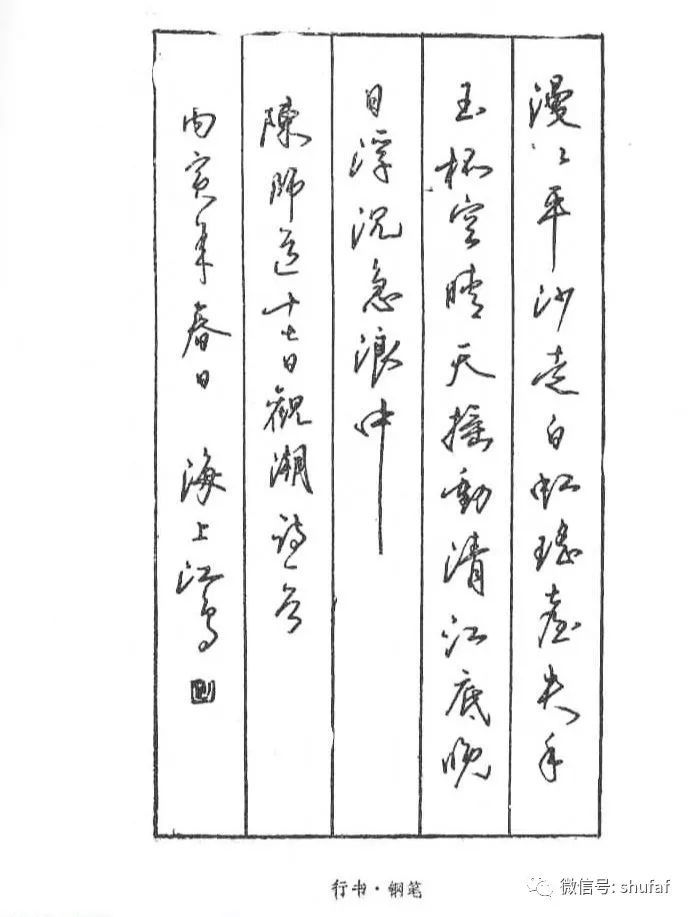 漫〻平沙走白虹瑤臺失手
玉杯空晴天搖動清江底晚
日浮沉急浪中
陳師道十七日觀潮詩一首
丙寅年春日 海上江鳥
行书·钢笔
微信号: shufaf